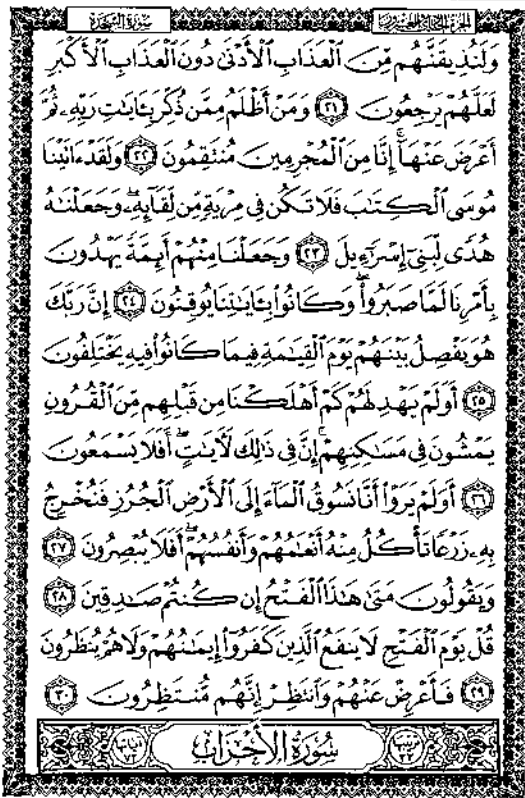 الجزء الحادي والعشرون سورة السجدة
وَلَنُذِيقَنَّهُم مِّنَ ٱلْعَذَابِ ٱلْأَدْنَىٰ دُونَ ٱلْعَذَابِ ٱلْأَكْبَرِ
لَعَلَّهُمْ يَرْجِعُونَ ٢١ وَمَنْ أَظْلَمُ مِمَّن ذُكِّرَ بِـَٔايَـٰتِ رَبِّهِۦ ثُمَّ
أَعْرَضَ عَنْهَآ ۚ إِنَّا مِنَ ٱلْمُجْرِمِينَ مُنتَقِمُونَ ٢٢ وَلَقَدْ ءَاتَيْنَا
مُوسَى ٱلْكِتَـٰبَ فَلَا تَكُن فِى مِرْيَةٍ مِّن لِّقَآئِهِۦ ۖ وَجَعَلْنَـٰهُ
هُدًى لِّبَنِىٓ إِسْرَٰٓءِيلَ ٢٣ وَجَعَلْنَا مِنْهُمْ أَئِمَّةً يَهْدُونَ
بِأَمْرِنَا لَمَّا صَبَرُوا۟ ۖ وَكَانُوا۟ بِـَٔايَـٰتِنَا يُوقِنُونَ ٢٤ إِنَّ رَبَّكَ
هُوَ يَفْصِلُ بَيْنَهُمْ يَوْمَ ٱلْقِيَـٰمَةِ فِيمَا كَانُوا۟ فِيهِ يَخْتَلِفُونَ
٢٥ أَوَلَمْ يَهْدِ لَهُمْ كَمْ أَهْلَكْنَا مِن قَبْلِهِم مِّنَ ٱلْقُرُونِ
يَمْشُونَ فِى مَسَـٰكِنِهِمْ ۚ إِنَّ فِى ذَٰلِكَ لَـَٔايَـٰتٍ ۖ أَفَلَا يَسْمَعُونَ
٢٦ أَوَلَمْ يَرَوْا۟ أَنَّا نَسُوقُ ٱلْمَآءَ إِلَى ٱلْأَرْضِ ٱلْجُرُزِ فَنُخْرِجُ
بِهِۦ زَرْعًا تَأْكُلُ مِنْهُ أَنْعَـٰمُهُمْ وَأَنفُسُهُمْ ۖ أَفَلَا يُبْصِرُونَ ٢٧
وَيَقُولُونَ مَتَىٰ هَـٰذَا ٱلْفَتْحُ إِن كُنتُمْ صَـٰدِقِينَ ٢٨
قُلْ يَوْمَ ٱلْفَتْحِ لَا يَنفَعُ ٱلَّذِينَ كَفَرُوٓا۟ إِيمَـٰنُهُمْ وَلَا هُمْ يُنظَرُونَ
٢٩ فَأَعْرِضْ عَنْهُمْ وَٱنتَظِرْ إِنَّهُم مُّنتَظِرُونَ ٣٠
ترتيبها ٣٣ سُورَةُ الأَحْزَابِ آياتها ٧٣